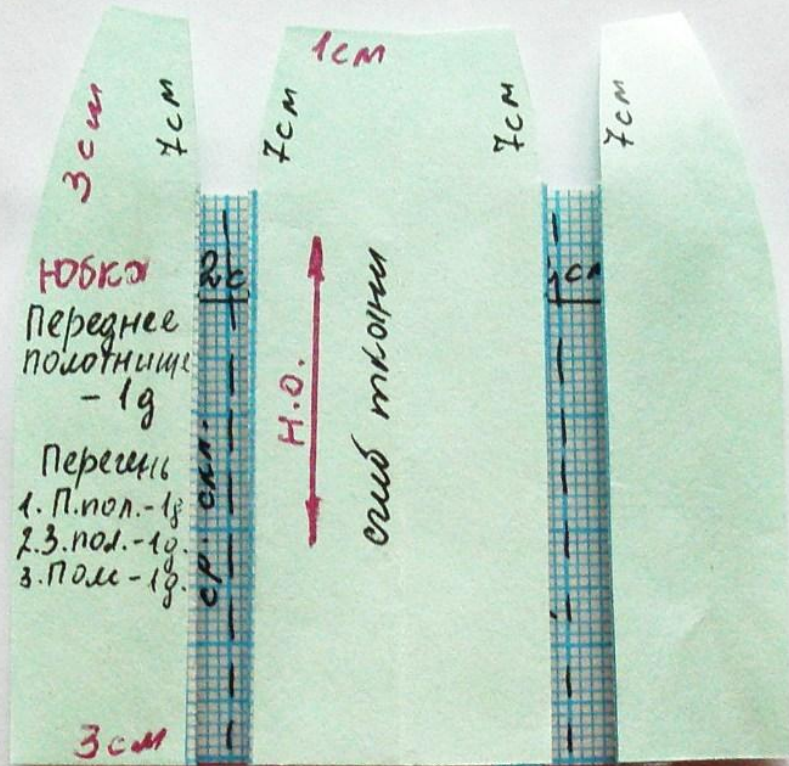 1см
3см
7см
7см
7см
7см
Юбка
Переднее
полотнище
- 1д
Перечень
1. П.пол.-1д
2. З.пол.-1д.
3. Пояс-1д.
2с
ср. скл.
Н.О.
сгиб ткани
1см
3см